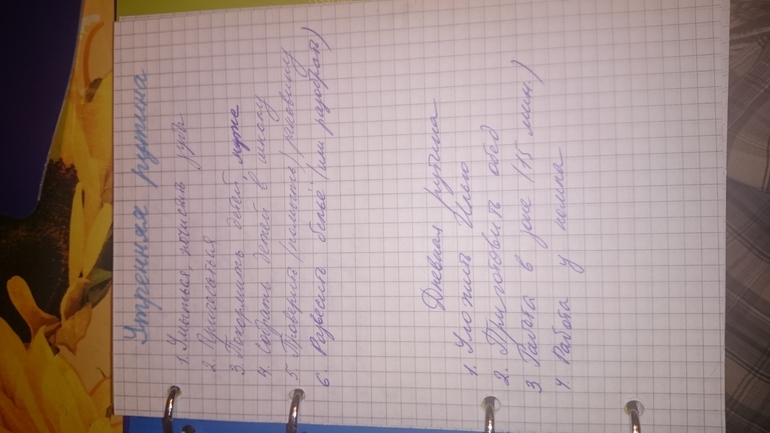 Утренняя рутина
1. Умыться, почистить зубы
2. Причесаться
3 Покормить детей, мужа
4. Собрать детей в школу
5. Проверить (помыть) раковину
6. Развесить бельё (или разобрать)
Дневная рутина
1. Уложить Илью
2. Приготовить обед
3 Работа в зоне (15 мин.)
4 Работа у компа